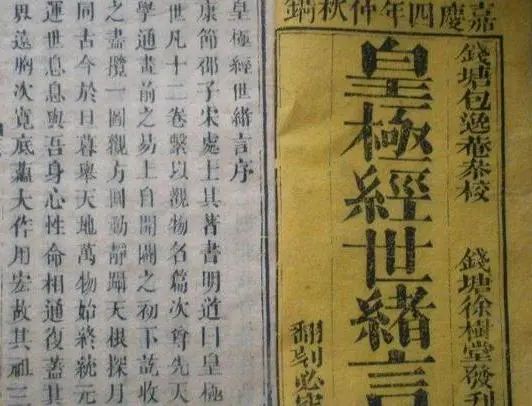 嘉慶四年仲秋鐫
錢塘包逸菴恭校　錢塘徐樹堂發刊
皇極經世緒言
翻刻必
皇極經世緒言序
康節邵子宋處士其著書明道曰皇極
世凡十二卷繫以觀物名篇次尊先天
學通畫前之易上自開闢之初下訖收
之盡攬一圖觀方圓動靜躡天根探月
同古今於旦暮與天地萬物始終統元
運世息息與吾身心性命相通復蓋其
界遠胸次寬底蘊大作用宏故其祖三